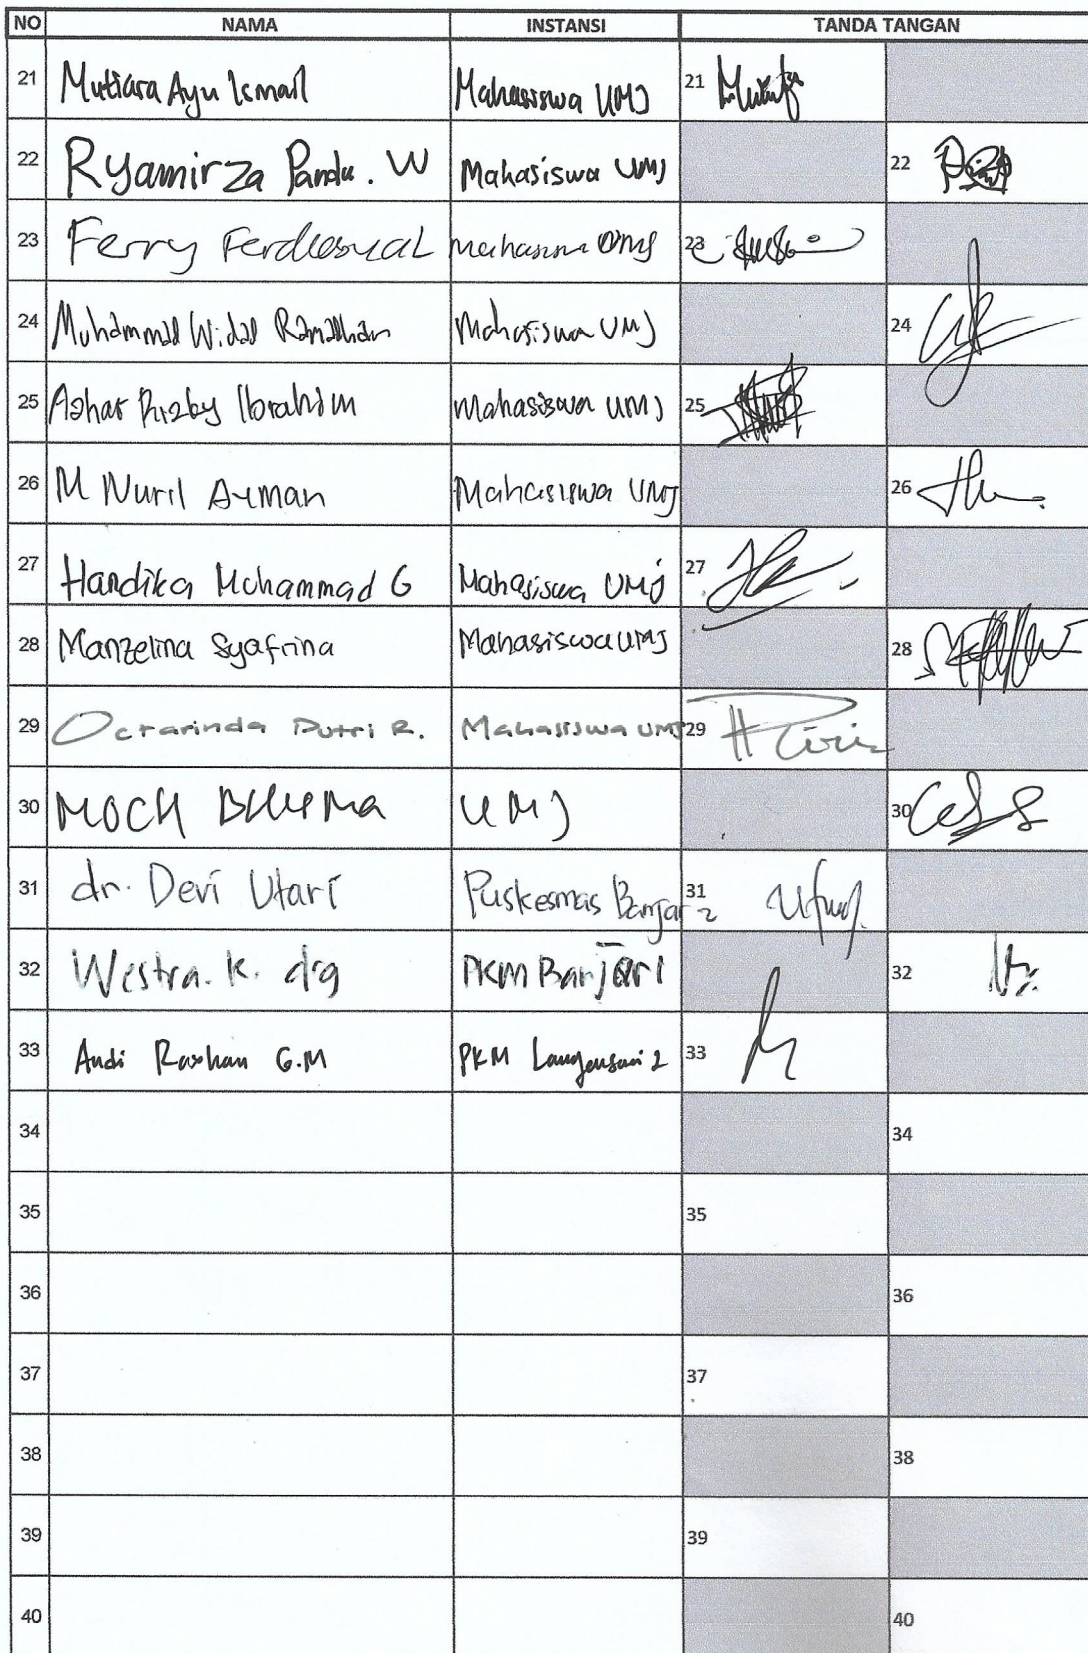 NO NAMA INSTANSI TANDA TANGAN
21 Mutiara Ayu Ismail Mahasiswa UMJ 21
22 Ryamirza Pandu. W Mahasiswa UMJ 22
23 Ferry UMJ 23
24 Muhammad Widad Ramadhan Mahasiswa UMJ 24
25 Azhar Rizby Ibrahim Mahasiswa UMJ 25
26 M Nuril Mahasiswa UMJ 26
27 Handika Mohammad G Mahasiswa UMJ 27
28 Manzelina Syafrina Mahasiswa UMJ 28
29 Octarinda Putri R. Mahasiswa UMJ 29
30 MOCH UMJ 30
31 dr. Devi Utari Puskesmas Banjar 2 31
32 Westra. K. drg PKM Banjar 1 32
33 Andi Rayhan G.M PKM Langensari 2 33
34 34
35 35
36 36
37 37
38 38
39 39
40 40